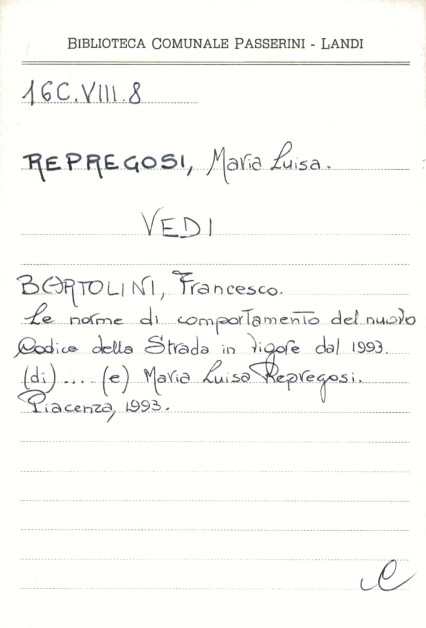 BIBLIOTECA COMUNALE PASSERINI - LANDI
16C.VIII.8
REPREGOSI, Maria Luisa.
VEDI
BORTOLINI, Francesco.
Le norme di comportamento del nuovo
Codice della Strada in vigore dal 1993.
(di) .... (e) Maria Luisa Repregosi.
Piacenza, 1993.